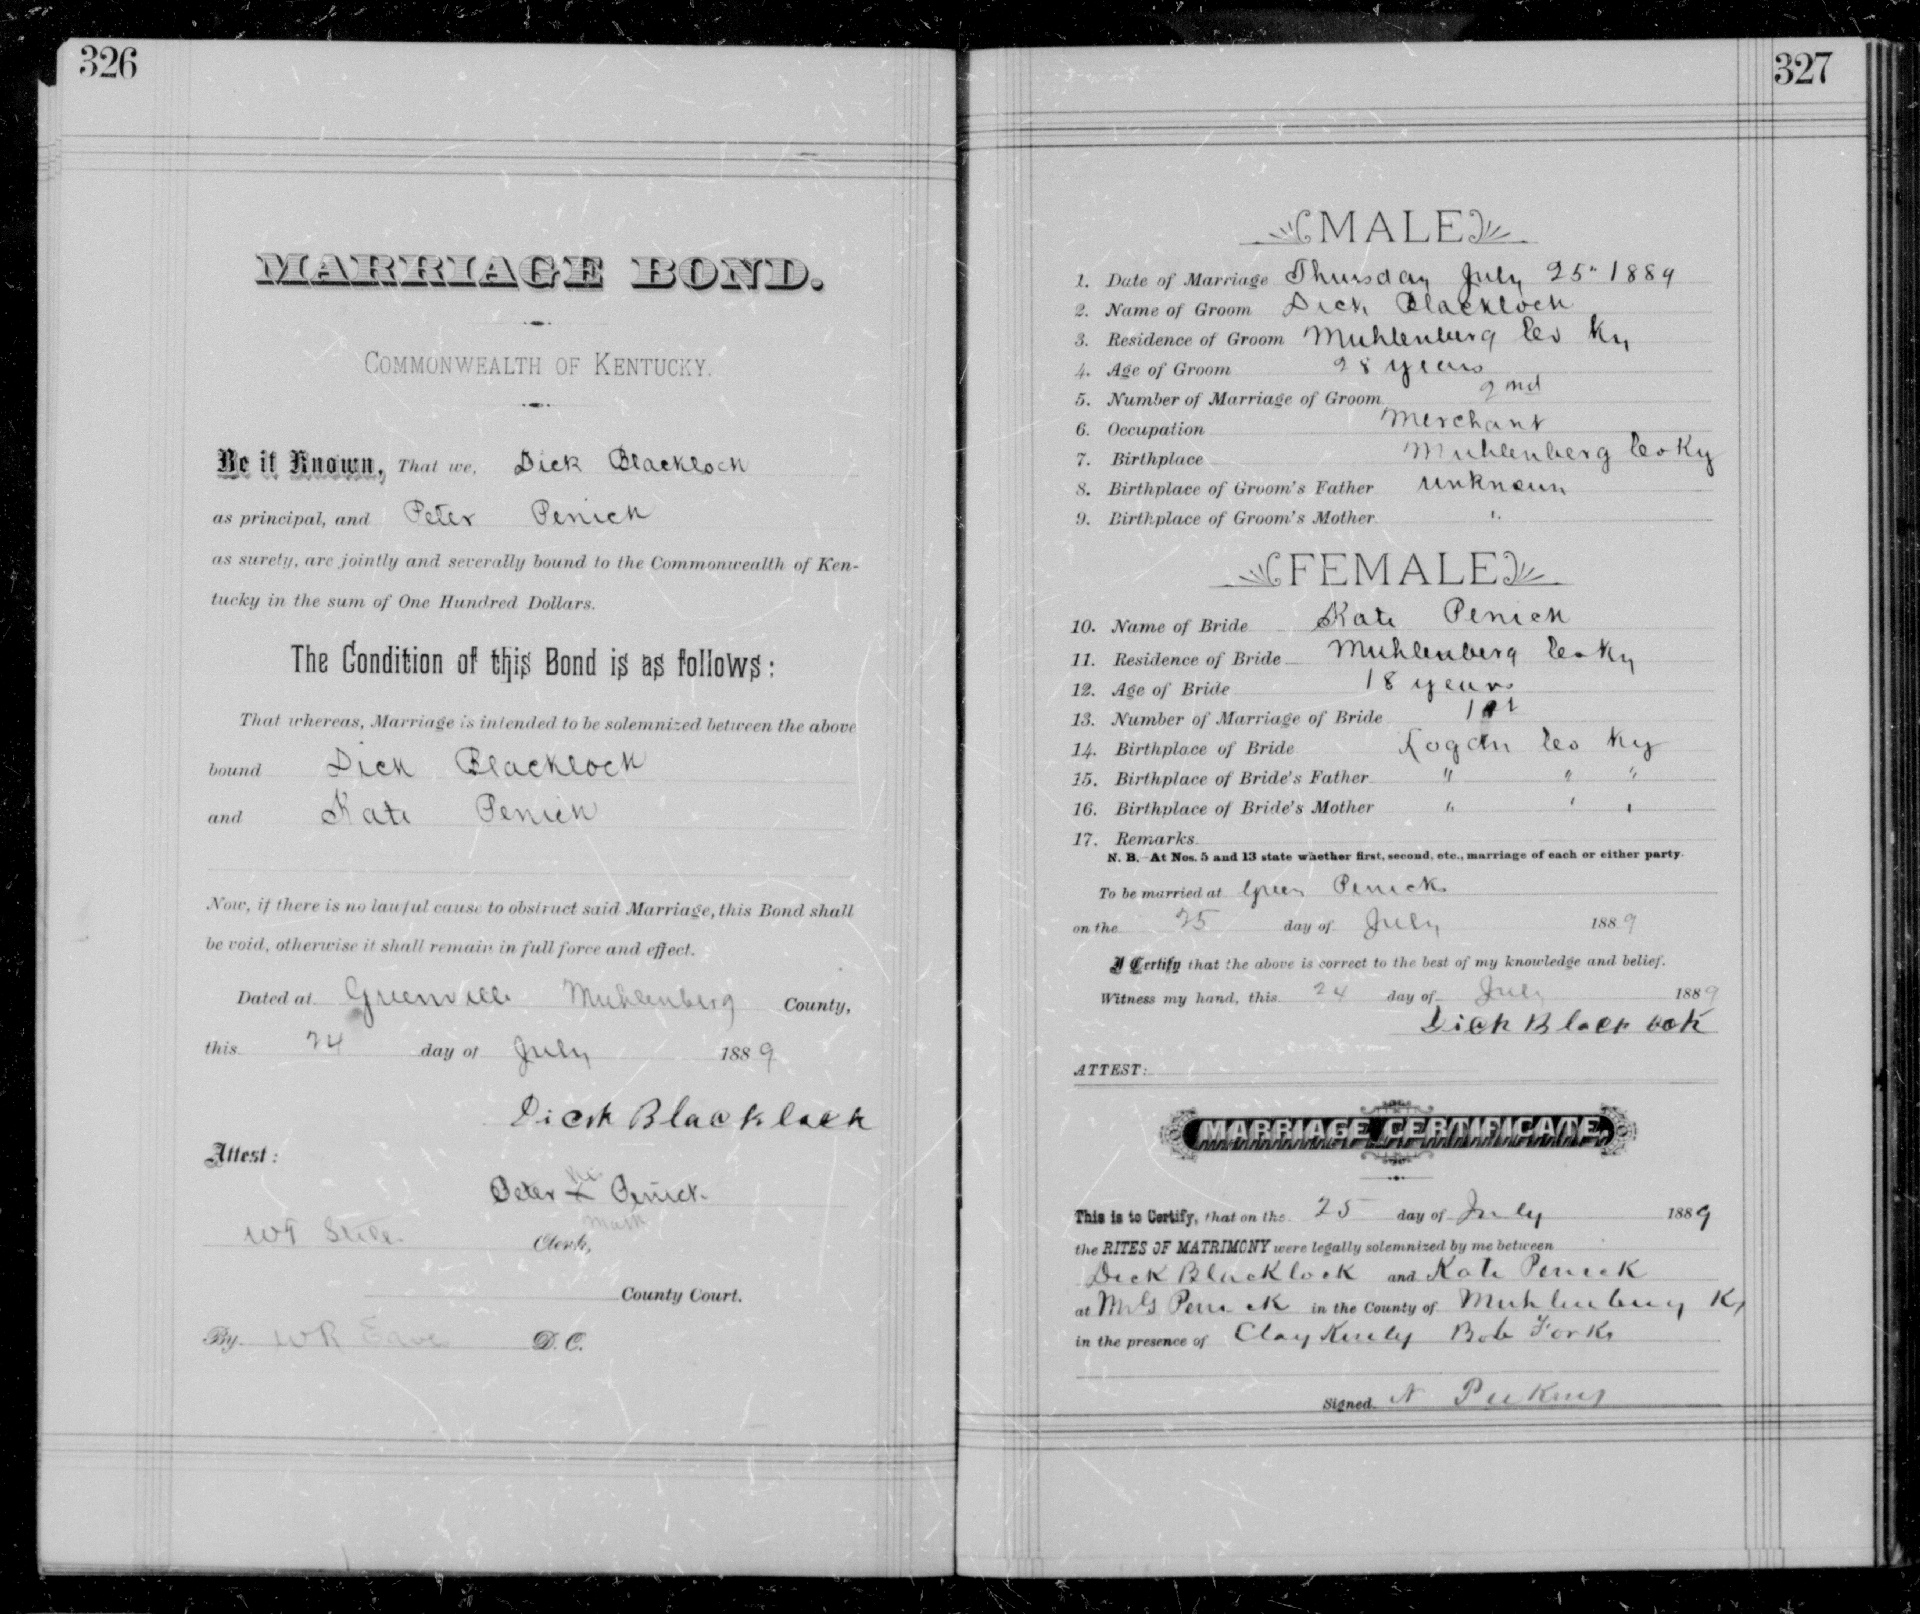 326
MARRIAGE BOND.
COMMONWEALTH OF KENTUCKY.
Be it Known, That we, Dick Blacklock
as principal, and Peter Penick
as surety, are jointly and severally bound to the Commonwealth of Ken-
tucky in the sum of One Hundred Dollars.
The Condition of this Bond is as follows:
That whereas, Marriage is intended to be solemnized between the above
bound Dick Blacklock
and Kate Penick
Now, if there is no lawful cause to obstruct said Marriage, this Bond shall
be void, otherwise it shall remain in full force and effect.
Dated at Greenville Muhlenberg County,
this 24 day of July 1889
Dick Blacklock
Attest:
his
Peter x Penick.
mark
WT Clerk,
County Court.
By WR Eave D. C.
327
MALE
1. Date of Marriage Thursday July 25" 1889
2. Name of Groom Dick Blacklock
3. Residence of Groom Muhlenberg Co Ky
4. Age of Groom 28 years
5. Number of Marriage of Groom 2nd
6. Occupation Merchant
7. Birthplace Muhlenberg Co Ky
8. Birthplace of Groom's Father unknown
9. Birthplace of Groom's Mother "
FEMALE
10. Name of Bride Kate Penick
11. Residence of Bride Muhlenberg Co Ky
12. Age of Bride 18 years
13. Number of Marriage of Bride 1st
14. Birthplace of Bride Logan Co Ky
15. Birthplace of Bride's Father " " "
16. Birthplace of Bride's Mother " " "
17. Remarks
N. B. At Nos. 5 and 13 state whether first, second, etc., marriage of each or either party.
To be married at Green Penicks
on the 25 day of July 1889
I Certify that the above is correct to the best of my knowledge and belief.
Witness my hand, this 24 day of July 1889
Dick Blacklock
ATTEST:
MARRIAGE CERTIFICATE.
This is to Certify, that on the 25 day of July 1889
the RITES OF MATRIMONY were legally solemnized by me between
Dick Blacklock and Kate Penick
at Penick in the County of Muhlenburg Ky
in the presence of Clay Bob Forks
Signed. N